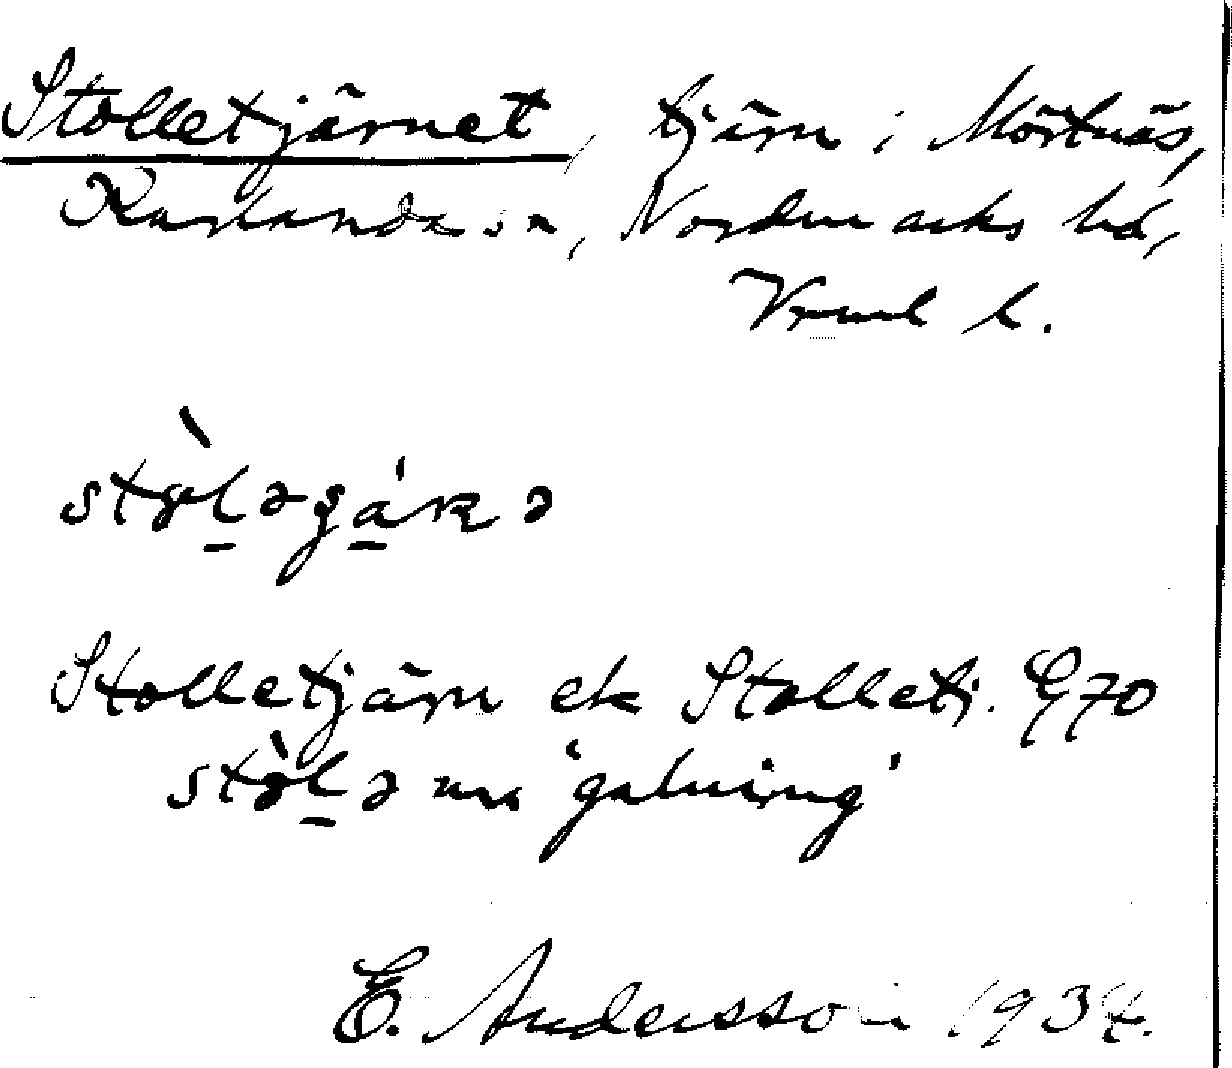 Stolletjärnet, tjärn i Mörtnäs,
Karlanda sn, Nordmarks hd,
Vrml l.
Stolletjärn ek Stolletj. E 70
"galning"
E. Andersson 1934.